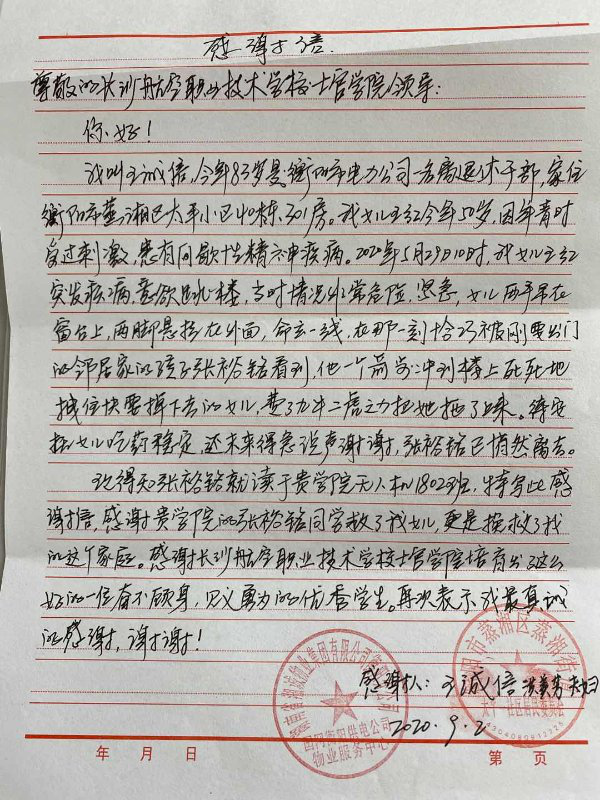 感谢信.
尊敬的长沙航空职业技术学校士官学院领导:
你好!
我叫王诚信,今年83岁是衡阳市电力公司一名离退休干部,家住
衡阳市蒸湘区太平小区40栋301房。我女儿王红今年50岁,因年青时
受过刺激,患有间歇性精神疾病。2020年5月29日10时,我女儿王红
突发疾病,意欲跳楼,当时情况非常危险、紧急,女儿两手吊在
窗台上,两脚悬挂在外面,命悬一线,在那一刻恰巧被刚要出门
的邻居家的孩子张裕铭看到,他一个箭步冲到楼上死死地
拽住快要掉下去的女儿,费了九牛二虎之力把她拖了上来。待安
抚女儿吃药稳定,还未来得急说声谢谢,张裕铭已悄然离去。
现得知张裕铭就读于贵学院无人机1802班,特写此感
谢信,感谢贵学院的张裕铭同学救了我女儿,更是挽救了我
的这个家庭。感谢长沙航空职业技术学校士官学院培育出这么
好的一位奋不顾身,见义勇为的优秀学生。再次表示我最真诚
的感谢,谢谢!
感谢人:王诚信 夫妇
2020.9.2
国网衡阳供电公司
物业服务中心
年 月 日 第 页